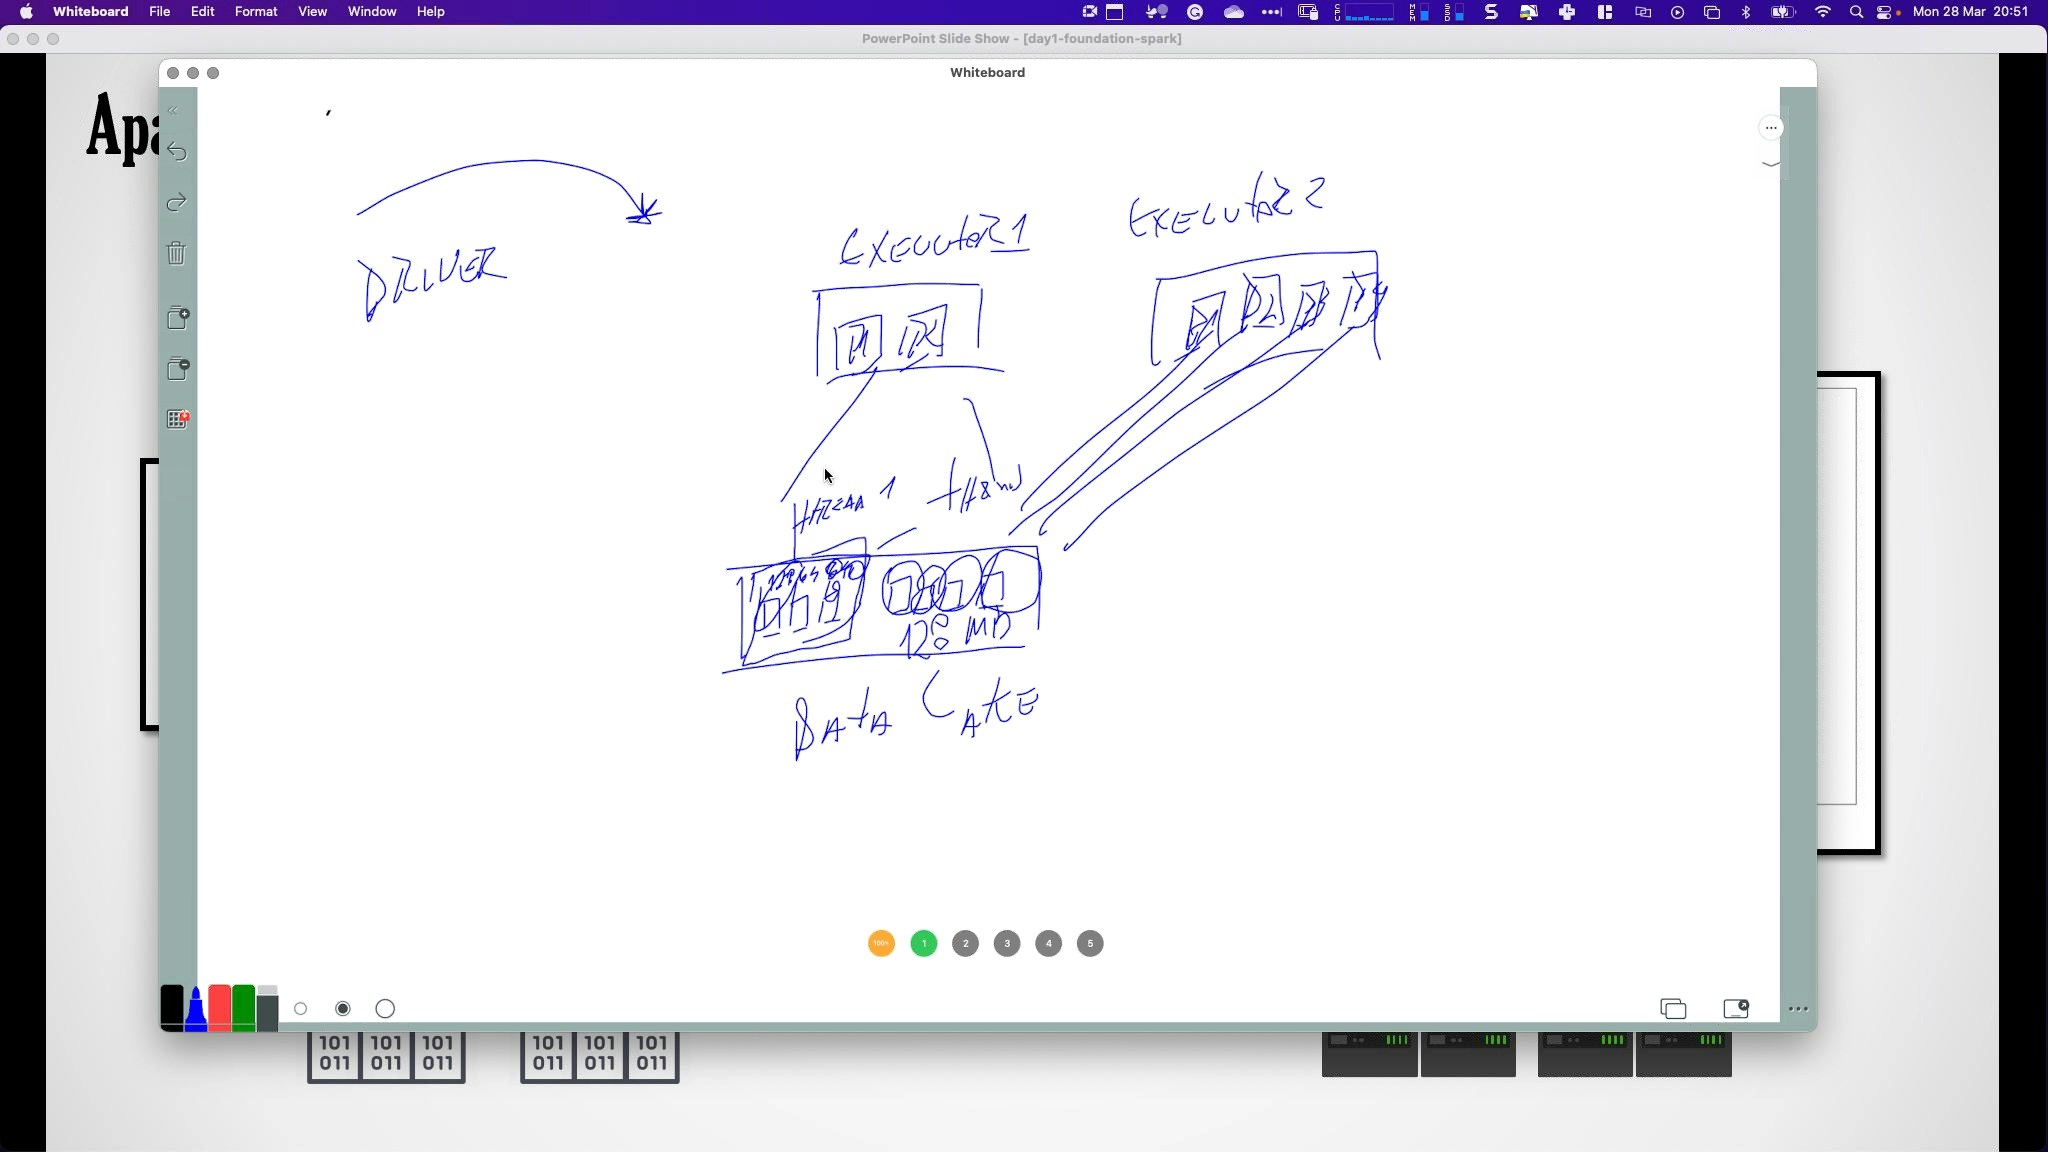 Whiteboard File Edit Format View Window Help
Mon 28 Mar 20:51
PowerPoint Slide Show - [day1-foundation-spark]
Whiteboard
Apa
DRIVER
EXECUTOR 1
EXECUTOR 2
P1
P1 P2 P3 P4
THREAD 1
128 MB
DATA LAKE
100%
1
2
3
4
5
101 101 101 101 101 101
011 011 011 011 011 011